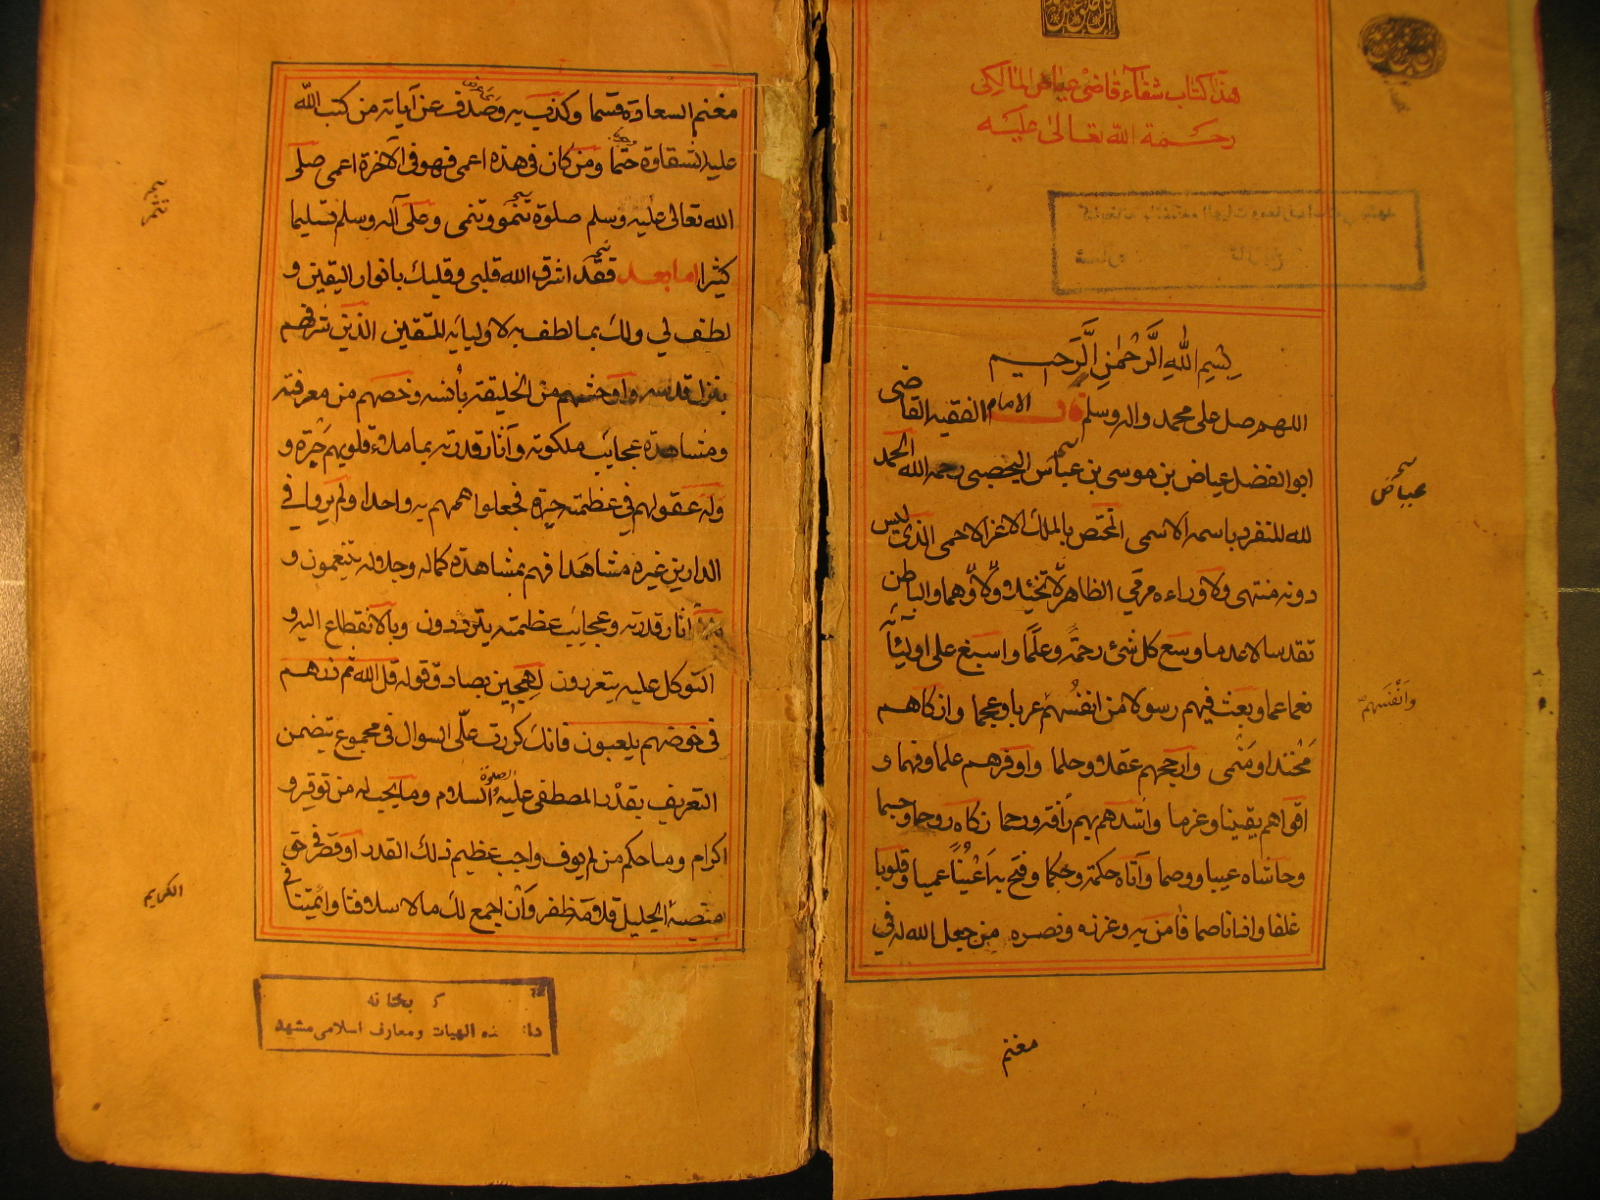 هذا كتاب شفاء قاضي عياض المالكي
رحمة الله تعالى عليه
بسم الله الرحمن الرحيم
اللهم صل على محمد واله وسلم قال الامام الفقيه القاضى
ابو الفضل عياض بن موسى بن عياض اليحصبى رحمه الله الحمد
عياض
لله المتفرد باسمه الاسمى المختص بالملك الاعز الاحمى الذى ليس
دونه منتهى ولا وراءه مرمى الظاهر لا تخيلا ولا وهما والباطن
تقدسا لا عدما وسع كل شئ رحمة وعلما واسبغ على اوليائه
نعما عما وبعث فيهم رسولا من انفسهم عربا وعجما وازكاهم
وانفسهم
محتدا ومنمى وارجحهم عقلا وحلما واوفرهم علما وفهما و
اقواهم يقينا وعزما واشدهم بهم رأفة ورحما زكاه روحا وجسما
وحاشاه عيبا ووصما وآتاه حكمة وحكما وفتح به أعينا عميا وقلوبا
غلفا واذانا صما فامن به وعزره ونصره من جعل الله له فى
مغنم
مغنم السعادة قسما وكذب به وصدف عن آياته من كتب الله
عليه الشقاوة حتما ومن كان فى هذه اعمى فهو فى الآخرة اعمى صلى
الله تعالى عليه وسلم صلوة تنمو وتنمى وعلى آله وسلم تسليما
كثيرا اما بعد فقد اشرق الله قلبى وقلبك بانوار اليقين و
لطف لي ولك بما لطف به لاوليائه المتقين الذين شرفهم
بنزل قدسه واوحشهم من الخليقة بأنسه وخصهم من معرفته
ومشاهدة عجائب ملكوته وآثار قدرته بما ملاء قلوبهم حبرة و
وله عقولهم فى عظمته حيرة فجعلوا همهم به واحدا ولم يروا في
الدارين غيره مشاهدا فهم بمشاهدة كماله وجلاله يتنعمون و
آثار قدرته وعجائب عظمته يترددون وبالانقطاع اليه و
التوكل عليه يتعززون لهجين بصادق قوله قل الله ثم ذرهم
فى خوضهم يلعبون فانك كررت على السوال فى مجموع يتضمن
التعريف بقدر المصطفى عليه الصلوة والسلام وما يجب له من توقير و
اكرام وما حكم من لم يوف واجب عظيم ذلك القدر او قصر فى حق
منصبه الجليل قلامة ظفر وأن اجمع لك ما لاسلافنا وائمتنا فى
الكريم
بخانه
الهيات ومعارف اسلامى مشهد